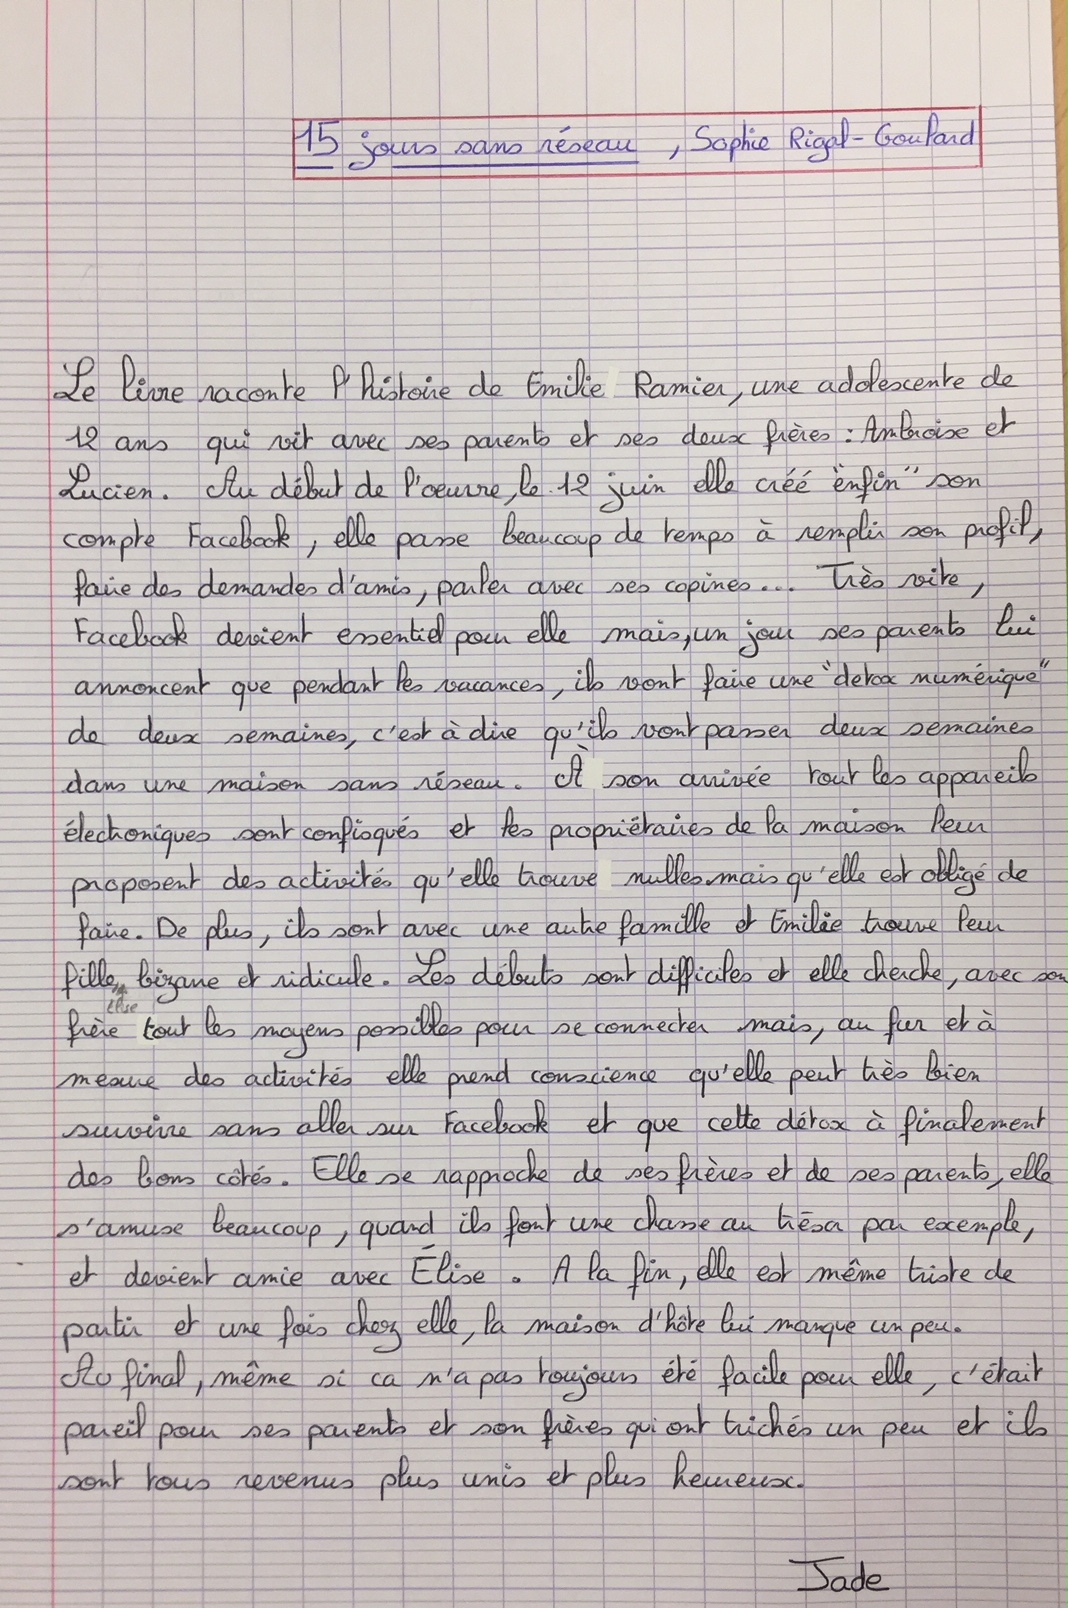 15 jours sans réseau, Sophie Rigal-Goulard
Le livre raconte l'histoire de Emilie Ramier, une adolescente de
12 ans qui vit avec ses parents et ses deux frères : Ambroise et
Lucien. Au début de l'oeuvre, le 12 juin elle créé "enfin" son
compte Facebook, elle passe beaucoup de temps à remplir son profil,
faire des demandes d'amis, parler avec ses copines... Très vite,
Facebook devient essentiel pour elle mais, un jour ses parents lui
annoncent que pendant les vacances, ils vont faire une "detox numérique"
de deux semaines, c'est à dire qu'ils vont passer deux semaines
dans une maison sans réseau. À son arrivée tout les appareils
électroniques sont confisqués et les propriétaires de la maison leur
proposent des activités qu'elle trouve nulles mais qu'elle est obligé de
faire. De plus, ils sont avec une autre famille et Emilie trouve leur
fille, bizarre et ridicule. Les débuts sont difficiles et elle cherche, avec son
Elise
frère tout les moyens possibles pour se connecter mais, au fur et à
mesure des activités elle prend conscience qu'elle peut très bien
survivre sans aller sur Facebook et que cette détox à finalement
des bons côtés. Elle se rapproche de ses frères et de ses parents, elle
s'amuse beaucoup, quand ils font une chasse au trésor par exemple,
et devient amie avec Élise. A la fin, elle est même triste de
partir et une fois chez elle, la maison d'hôte lui manque un peu.
Au final, même si ca n'a pas toujours été facile pour elle, c'était
pareil pour ses parents et son frères qui ont trichés un peu et ils
sont tous revenus plus unis et plus heureux.
Jade